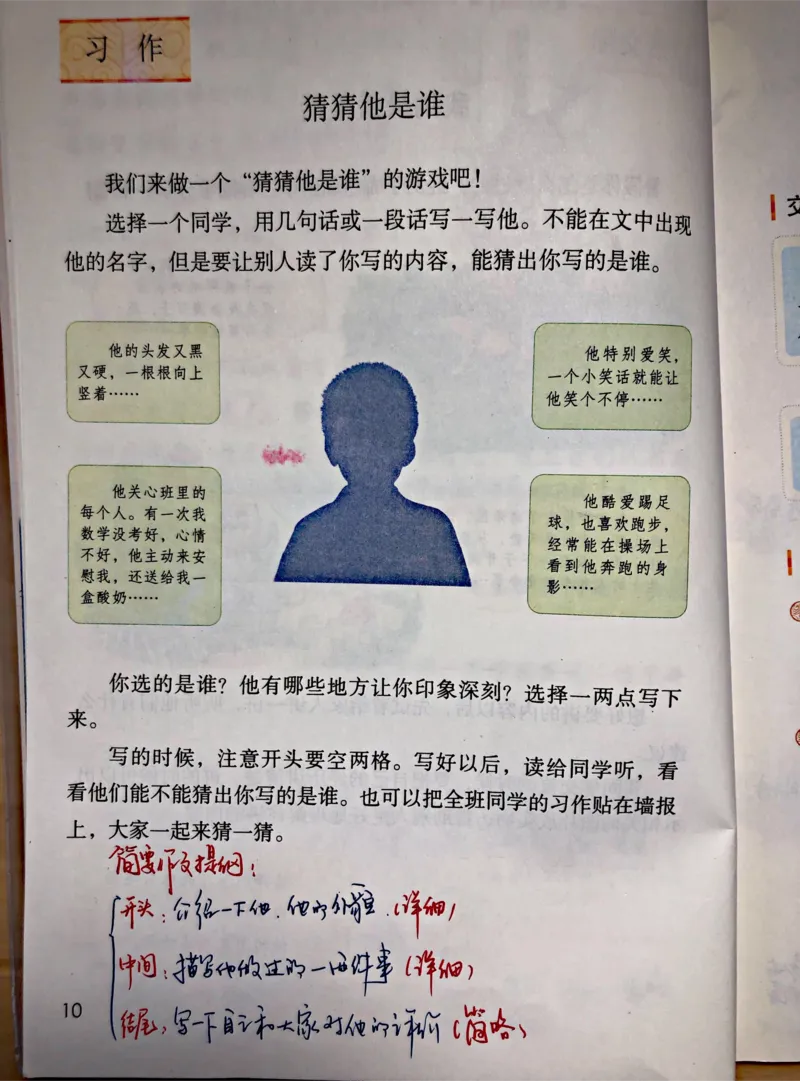 习 作
猜猜他是谁
我们来做一个“猜猜他是谁”的游戏吧！
选择一个同学，用几句话或一段话写一写他。不能在文中出现
他的名字，但是要让别人读了你写的内容，能猜出你写的是谁。
他的头发又黑
又硬，一根根向上
竖着……
他特别爱笑，
一个小笑话就能让
他笑个不停……
他关心班里的
每个人。有一次我
数学没考好，心情
不好，他主动来安
慰我，还送给我一
盒酸奶……
他酷爱踢足
球，也喜欢跑步，
经常能在操场上
看到他奔跑的身
影……
你选的是谁？他有哪些地方让你印象深刻？选择一两点写下
来。
写的时候，注意开头要空两格。写好以后，读给同学听，看
看他们能不能猜出你写的是谁。也可以把全班同学的习作贴在墙报
上，大家一起来猜一猜。
简要作文提纲：
开头：介绍一下他、他的外貌。（详细）
中间：描写他做过的一两件事（详细）
结尾：写一下自己和大家对他的评价（简略）
10
交